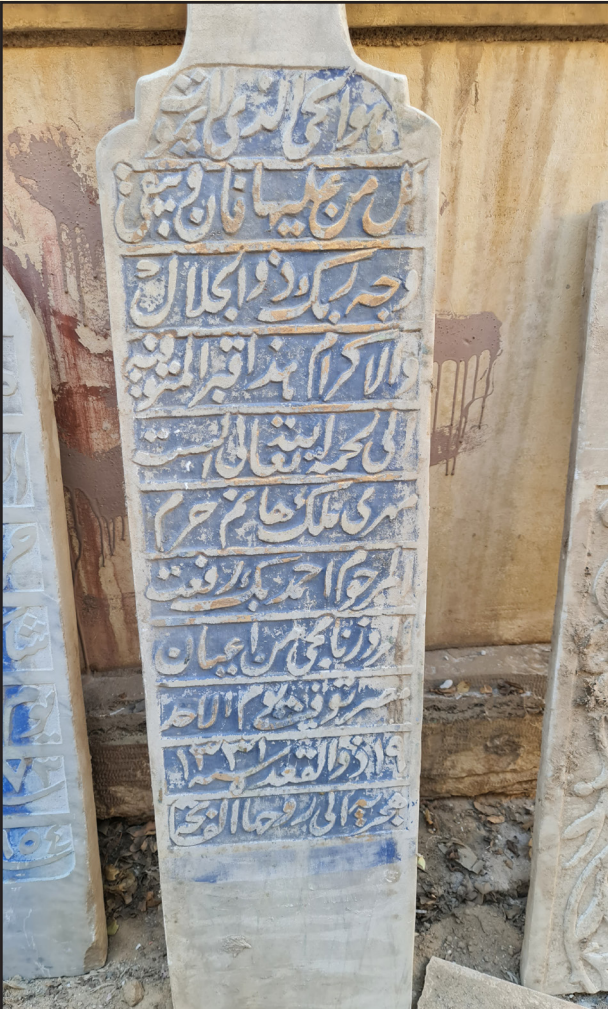 هو الحي الذي لا يموت
كل من عليها فان ويبقى
وجه ربك ذو الجلال
والاكرام هذا قبر المتوفيه
الى رحمة الله تعالى الست
مهرى ملك هانم حرم
المرحوم احمد بك رفعت
الروزنامجى من اعيان
مصر توفيت يوم الاحد
١٩ ذو القعده سنة ١٣٣١
هجريه الى روحها الفاتحة